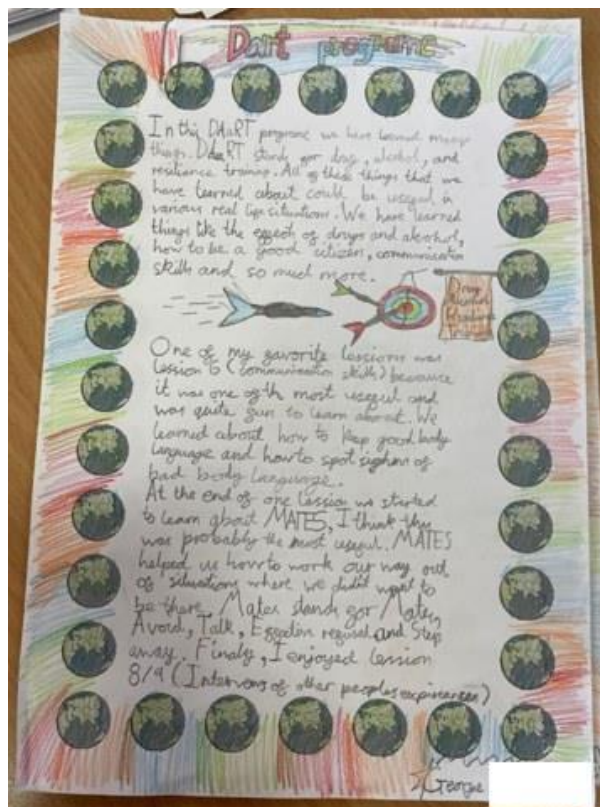 Dart programe
In this DAaRT programe we have learned many
things. DAaRT stands for drug, alcohol, and
resilience training. All of these things that we
have learned about could be useful in
various real life situations. We have learned
things like the effects of drugs and alcohol,
how to be a good citizen, communication
skills and so much more.
Drug
Alcohol
Resilience
One of my favorite lessions was
lession 6 (communication skills) because
it was one of th most useful and
was quite fun to learn about. We
learned about how to keep good body
language and how to spot of
bad body language.
At the end of one lession we started
to learn about MATES, I think this
was probably the most useful. MATES
helped us how to work our way out
of situations where we didn't want to
be there. Mates stands for Mates,
Avoid, Talk, refusal and Step
away. Finaly, I enjoyed lession
8/9 ( of other peoples )
George